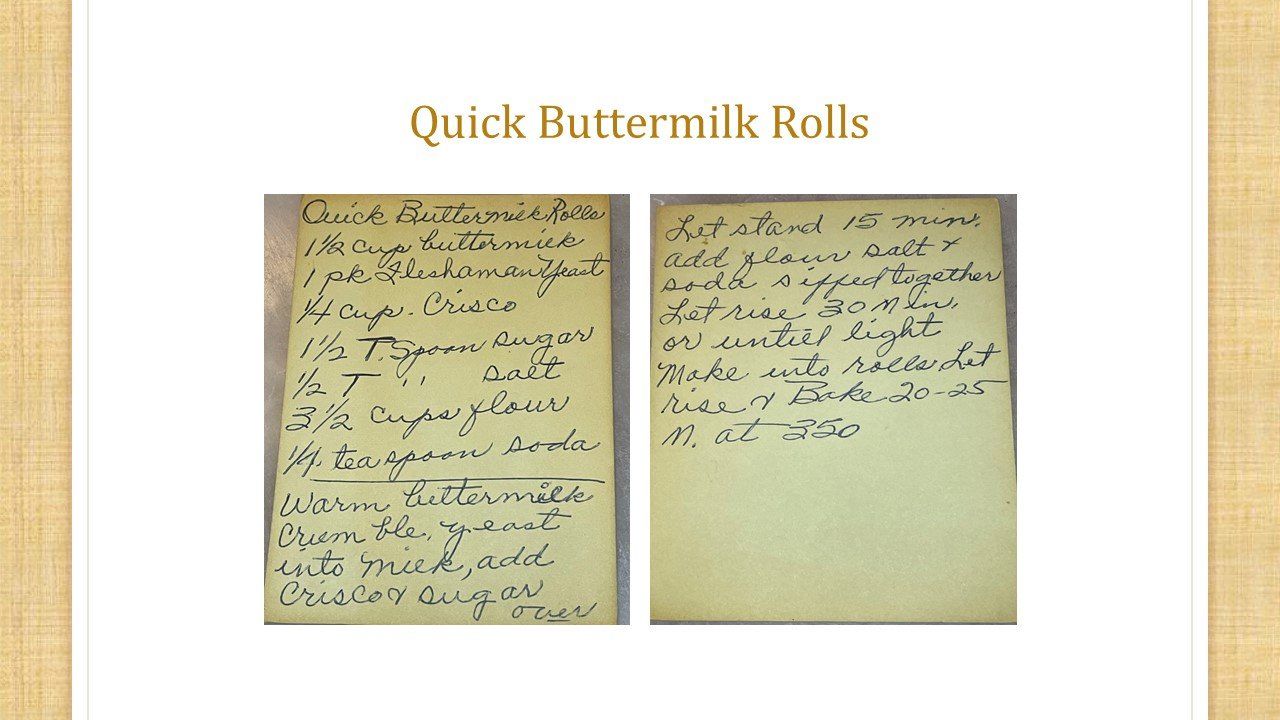 Quick Buttermilk Rolls
Quick Buttermilk Rolls
1 1/2 cup buttermilk
1 pk Fleshaman Yeast
1/4 cup. Crisco
1 1/2 T. Spoon sugar
1/2 T " salt
3 1/2 cups flour
1/4 teaspoon soda
Warm buttermilk
Crumble, yeast
into milk, add
Crisco & sugar
over
Let stand 15 min.
add flour salt &
soda siffed together
Let rise 30 Min.
or until light
Make into rolls Let
rise & Bake 20-25
M. at 350